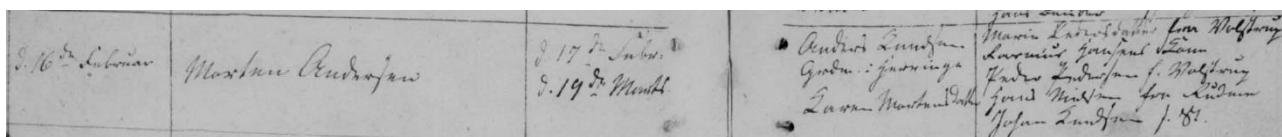 d. 16de Februar
Morten Andersen
d. 17de Febr.
d. 19de Marts.
Anders Knudsen
Grdm. i Herringe
Karen Mortensdatter
Marie Pedersdatter fra Volstrup
Rasmus Hansens Kone
Peder Pedersen f. Volstrup
Hans Nielsen fra Rudme
Johan Knudsen f.